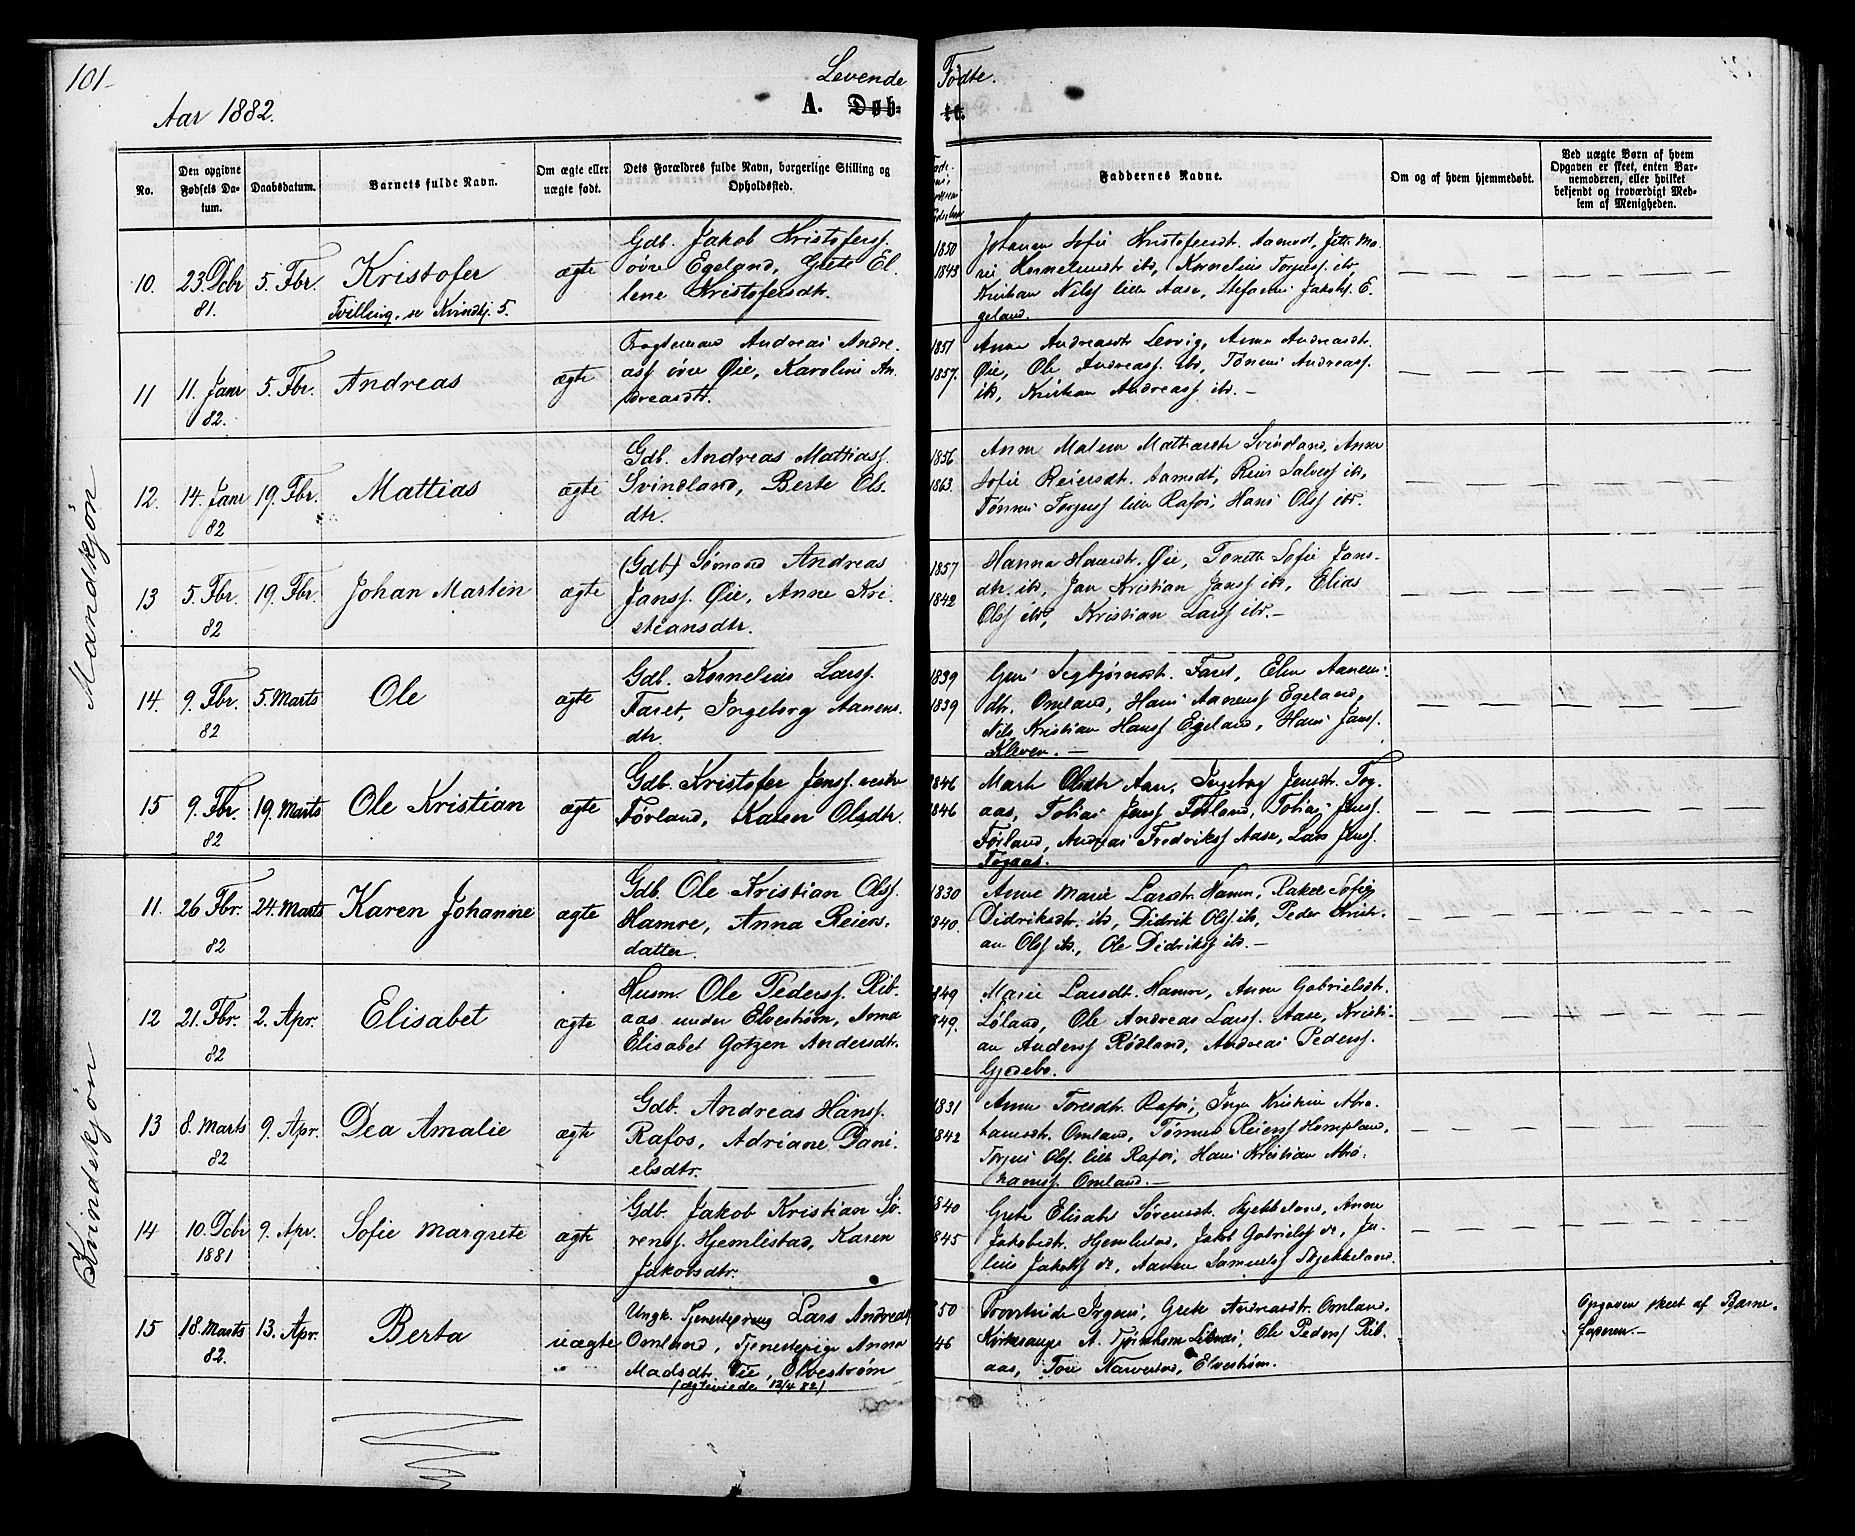 101-
Levende Fødte.
Aar 1882.
A. Døb- te.
No.
Den opgivne Fødsels Datum.
Daabsdatum.
Barnets fulde Navn.
Om ægte eller uægte født.
Dets Forældres fulde Navn, borgerlige Stilling og Opholdssted.
Faddernes Navne.
Om og af hvem hjemmedøbt.
Ved uægte Børn af hvem Opgaven er skeet, enten Barnemoderen, eller hvilket bekjendt og troværdigt Medlem af Menigheden.
Mandkjøn
10. 23. Dcbr 81. 5. Fbr. Kristofer
Tvilling, se Kvindkj. 5.
ægte
Gdb. Jakob Kristofersf.
øvre Egeland, Grete El-
lene Kristofersdtr.
1850
1843
Johanne Sofie Kristofersdt. Aamodt, Jette Ma-
rie Kornelisdt ibd, Kornelius Torgersf. ibd,
Kristian Nilsf lille Aase, Stefanus Jakobsf. E-
geland.
11 11. Janr 82. 5. Fbr. Andreas ægte
Andreas Andre-
asf øvre Øie, Karoline An-
dreasdtr.
1851
1857.
Anne Andreasdtr Lervig, Anna Andreasdt.
Øie, Ole Andreasf. ibd, Tønnes Andreasf.
ibd, Kristian Andreasf ibd. -
12. 14. Janr 82 19. Fbr. Mattias ægte
Gdb. Andreas Mattiasf.
Svindland, Berte Ols-
dtr.
1856
1863.
Anne Malene Mathiasdtr Svindland, Anne
Sofie Reiersdt. Aamodt, Reier Salvesf ibd,
Tønnes Torgersf lille Rafos, Hans Olsf ibd.
13 5. Fbr. 82 19. Fbr. Johan Martin ægte
(Gdb.) Sømand Andreas
Jansf. Øie, Anne Kri-
stiansdtr.
1857
1842
Hanna Hansdt. Øie, Tonette Sofie Jans-
dtr. ibd, Jan Kristian Jansf ibd, Elias
Olsf ibd, Kristian Larsf ibd. -
14. 9. Fbr. 82 5. Marts Ole ægte
Gdb. Kornelius Larsf.
Faret, Ingeborg Aanens-
dtr.
1839
1839
Guri Segbjørnsdt. Faret, Elen Aanens-
dtr. Omland, Hans Aanensf Egeland,
Nils Kristian Hansf Egeland, Hans Jansf.
Kleven. -
15 9. Fbr. 82 19. Marts Ole Kristian ægte
Gdb. Kristofer Jensf. vestre
Førland, Karen Olsdtr.
1846
1846
Marte Olsdtr Aan, Ingeborg Jensdt. Tog-
aas, Tobias Jensf Førland, Tobias Jensf.
Førland, Andreas Fredriksf Aase, Lars Jensf.
Togaas.
Kvindekjøn
11. 26 Fbr. 82 24. Marts Karen Johanne ægte
Gdb. Ole Kristian Olsf.
Hamre, Anna Reiers-
datter.
1830
1840.
Anne Marie Larsdtr Hamre, Rakel Sofie
Didriksdtr. ibd, Didrik Olsf. ibd, Peder Kristi-
an Olsf ibd, Ole Didriksf ibd. -
12 21. Fbr. 82 2. Apr. Elisabet ægte
Husm. Ole Pedersf. Rib-
aas under Elvestrøm, Anna
Elisabet Gotzen Andersdtr.
1849
1849.
Marie Larsdt. Hamre, Anne Gabrielsdt.
Løland, Ole Andreas Larsf. Aase, Kristi-
an Andersf Rødland, Andreas Pedersf.
Gjedebo.
13 8. Marts 82 9. Apr. Dea Amalie ægte
Gdb. Andreas Hansf.
Rafos, Adriane Dani-
elsdtr.
1831
1842
Anne Toresdtr. Rafos, Inger Kristine Abra-
hamsdtr. Omland, Tønnes Reiersf Hompland,
Torgeus Olsf. lille Rafos, Hans Kristian Abra-
hamsf. Omland. -
14 10. Dcbr 1881 9. Apr. Sofie Margrete ægte
Gdb. Jakob Kristian Sø-
rensf. Hjemlestad, Karen
Jakobsdtr.
1840
1845
Grete Elisabt Sørensdt. Skjekkeland, Anne
Jakobsdt. Hjemlestad, Jakob Gabrielsf de, Ju-
lius Jakobsf de, Aanen Samuelsf Skjekkeland.
15 18. Marts 82. 13. Apr. Berta uægte
Ungk. Tjenestedreng Lars Andreasf.
Omland, Tjenestepige Anna
Madsdtr. Øie, Elvestrøm
(ægteviede 12/4 82)
50
46
Provstinde Irgens, Grete Andreasdtr. Omland,
Kirkesanger A. Tjørnhom Liknes, Ole Pedersf Rib-
aas, Tore Narvestad, Elvestrøm.
Opgaven skeet af Barne-
faderen. -